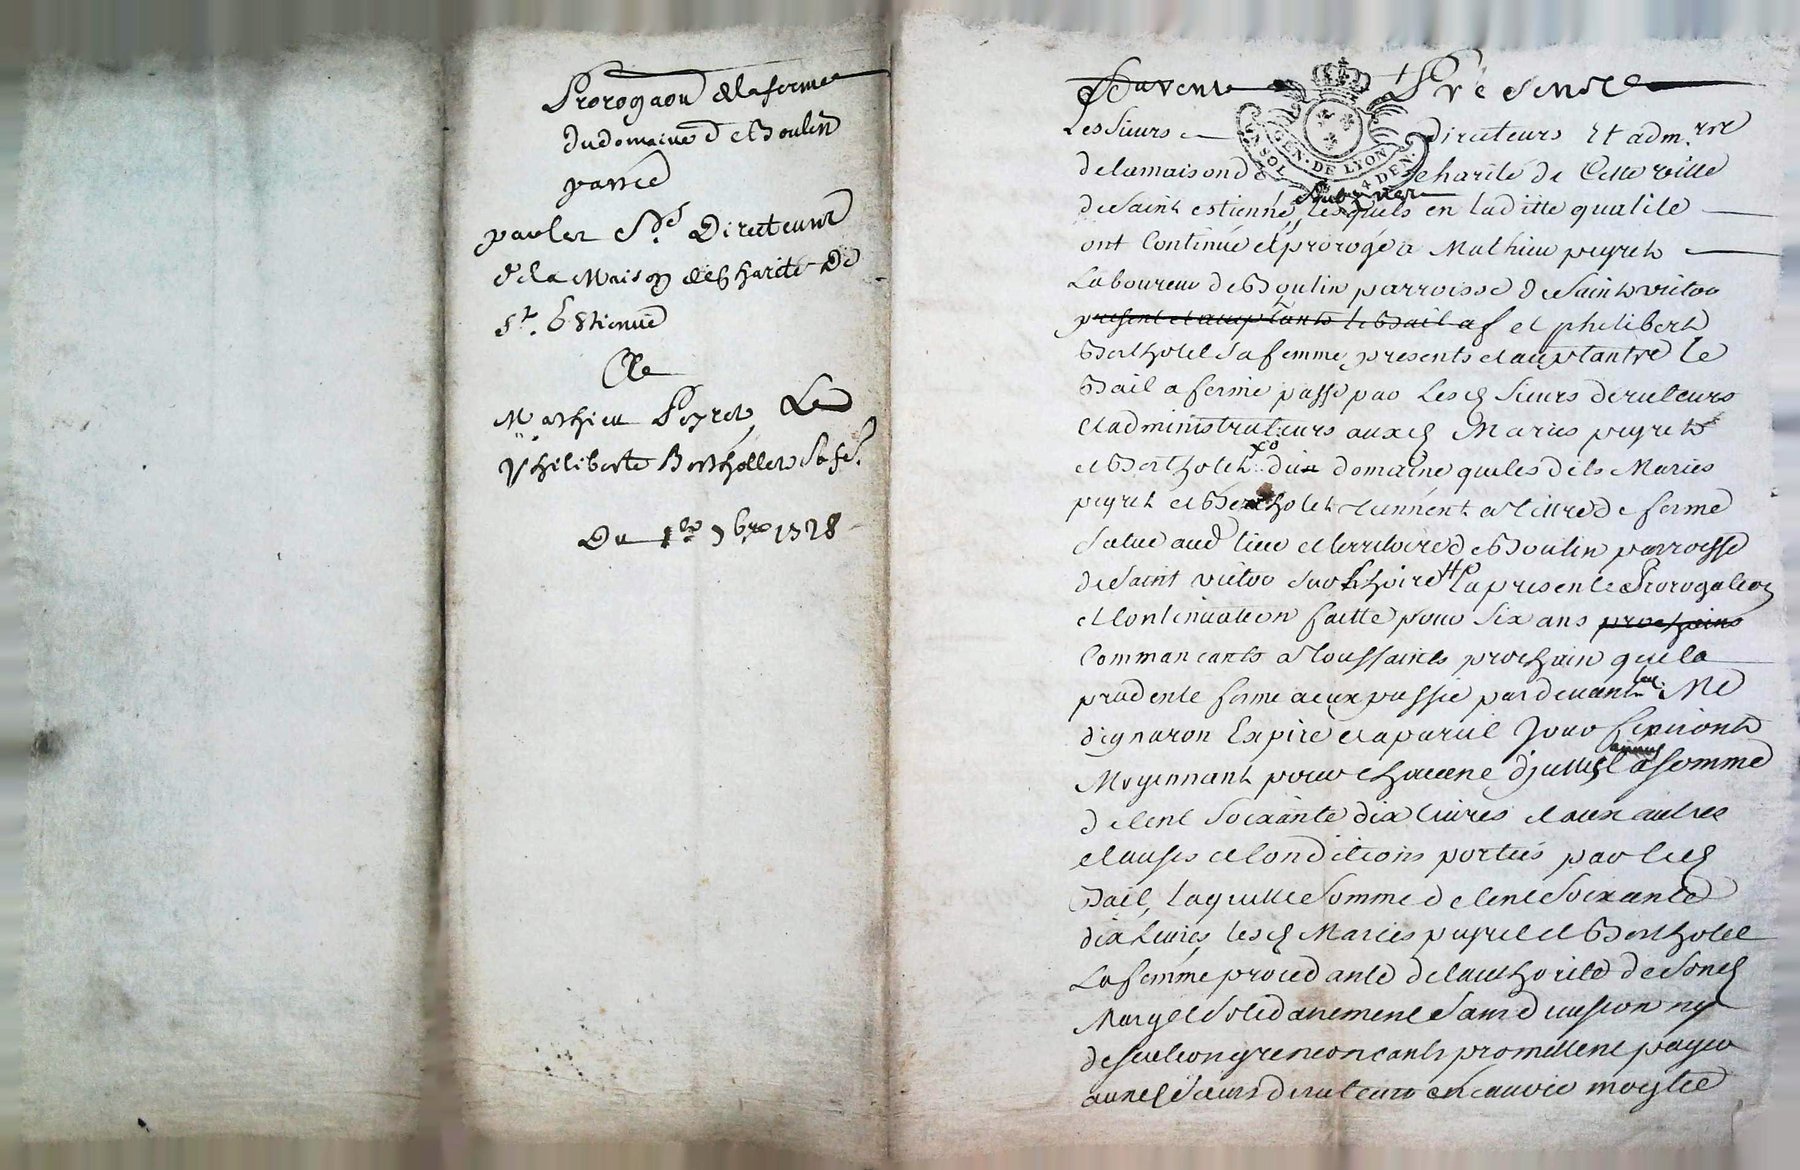 Prorogaon de la ferme
du domaine de Boulin
passée
par les Srs Directeurs
de la Maison de Charité De
St. Estienne
A
Mathieu Peyret, Et
Philiberte Bertholet sa fe.
Du 1er 9bre 1728
Pardevant Présence
Les Sieurs Directeurs Et adm.rs
GEN. DE LYON
UN SOL 4 DEN.
de la maison de charité de Cette ville
soubsignes
de Saint estienne, lesquels en laditte qualité
ont Continué et prorogé a Mathieu peyret
Laboureur de Boulin parroisse de Saint victor
present et acceptants le Bail af et philiberte
Bertholet sa femme presents et acceptants le
Bail a ferme passé par Lesd Sieurs directeurs
et administrateurs auxd Mariés peyret
et Bertholet du domaine que lesdits Mariés
peyret et Bertholet tiennent a tittre de ferme
situé aud lieu et territoire de Boulin parroisse
de Saint victor sur Loire la presente Prorogation
et Continuation faitte pour Six ans prochains
Commancants a Toussaints prochain que la
precedente ferme a eux passée pardevant Me
dignaron Expire et a pareil Jour finiront
Moyennant pour chacune d'jcelles la somme
annees
de Cent Soixante dix livres et aux autres
clauses et Conditions portées par led
Bail, laquelle somme de Cent Soixante
dix Livres lesd Mariés peyret et Bertholet
La femme procedante de l'authorité de Sond
Mary et Solidairement Sans division ny
discution y renoncants promettent payer
auxd Sieurs directeurs en deux moytié